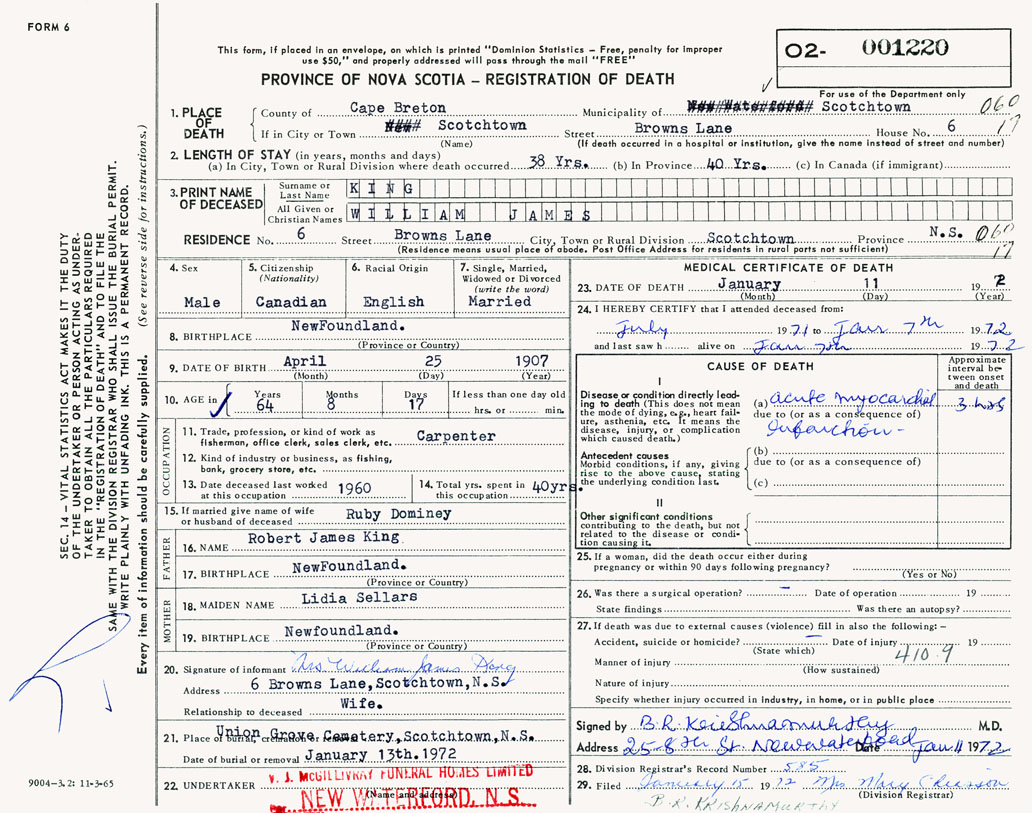 FORM 6
This form, if placed in an envelope, on which is printed "Dominion Statistics – Free, penalty for improper
use $50," and properly addressed will pass through the mail "FREE"
PROVINCE OF NOVA SCOTIA – REGISTRATION OF DEATH
O2- 001220
For use of the Department only
1. PLACE OF DEATH
County of Cape Breton Municipality of Scotchtown 060
If in City or Town Scotchtown Street Browns Lane House No. 6 17
(Name) (If death occurred in a hospital or institution, give the name instead of street and number)
2. LENGTH OF STAY (in years, months and days)
(a) In City, Town or Rural Division where death occurred 38 Yrs. (b) In Province 40 Yrs. (c) In Canada (if immigrant)
3. PRINT NAME OF DECEASED
Surname or Last Name KING
All Given or Christian Names WILLIAM JAMES
RESIDENCE No. 6 Street Browns Lane City, Town or Rural Division Scotchtown Province N.S. 060
(Residence means usual place of abode. Post Office Address for residents in rural parts not sufficient) 17
4. Sex
Male
5. Citizenship
(Nationality)
Canadian
6. Racial Origin
English
7. Single, Married,
Widowed or Divorced
(write the word)
Married
8. BIRTHPLACE NewFoundland.
(Province or Country)
9. DATE OF BIRTH April 25 1907
(Month) (Day) (Year)
10. AGE in Years Months Days If less than one day old
64 8 17 hrs. or min.
OCCUPATION
11. Trade, profession, or kind of work as
fisherman, office clerk, sales clerk, etc. Carpenter
12. Kind of industry or business, as fishing,
bank, grocery store, etc.
13. Date deceased last worked
at this occupation 1960
14. Total yrs. spent in
this occupation 40yrs.
15. If married give name of wife
or husband of deceased Ruby Dominey
FATHER
16. NAME Robert James King
17. BIRTHPLACE NewFoundland.
(Province or Country)
MOTHER
18. MAIDEN NAME Lidia Sellars
19. BIRTHPLACE Newfoundland.
(Province or Country)
20. Signature of informant Mrs William James King
Address 6 Browns Lane,Scotchtown,N.S.
Relationship to deceased Wife.
21. Place of burial, cremation or removal Union Grove Cemetery,Scotchtown,N.S.
Date of burial or removal January 13th.1972
22. UNDERTAKER V. J. McGILLIVRAY FUNERAL HOMES LIMITED
(Name and address)
NEW WATERFORD, N. S.
MEDICAL CERTIFICATE OF DEATH
23. DATE OF DEATH January 11 1972
(Month) (Day) (Year)
24. I HEREBY CERTIFY that I attended deceased from:
July 1971 to Jan 7th 1972
and last saw h alive on Jan 7th 1972
CAUSE OF DEATH
Approximate
interval be-
tween onset
and death
I
Disease or condition directly lead-
ing to death (This does not mean
the mode of dying, e.g., heart fail-
ure, asthenia, etc. It means the
disease, injury, or complication
which caused death.)
(a) acute myocardial 3 hrs
due to (or as a consequence of)
Infarction -
Antecedent causes
Morbid conditions, if any, giving
rise to the above cause, stating
the underlying condition last.
(b)
due to (or as a consequence of)
(c)
II
Other significant conditions
contributing to the death, but not
related to the disease or condi-
tion causing it.
25. If a woman, did the death occur either during
pregnancy or within 90 days following pregnancy?
(Yes or No)
26. Was there a surgical operation? – Date of operation 19
State findings Was there an autopsy?
27. If death was due to external causes (violence) fill in also the following: –
Accident, suicide or homicide? – Date of injury 19
(State which)
410.9
Manner of injury
(How sustained)
Nature of injury
Specify whether injury occurred in industry, in home, or in public place
Signed by B.R. Krishnamurthy M.D.
Address 25-8th St. Newwaterford Date Jan 11 1972
28. Division Registrar's Record Number 585
29. Filed January 15 1972 Mrs Mary
(Division Registrar)
B. R. KRISHNAMURTHY
SEC. 14 – VITAL STATISTICS ACT MAKES IT THE DUTY
OF THE UNDERTAKER OR PERSON ACTING AS UNDER-
TAKER TO OBTAIN ALL THE PARTICULARS REQUIRED
IN THE "REGISTRATION OF DEATH" AND TO FILE THE
SAME WITH THE DIVISION REGISTRAR WHO SHALL ISSUE THE BURIAL PERMIT.
WRITE PLAINLY WITH UNFADING INK. THIS IS A PERMANENT RECORD.
Every item of information should be carefully supplied. (See reverse side for instructions.)
9004-3.2: 11-3-65